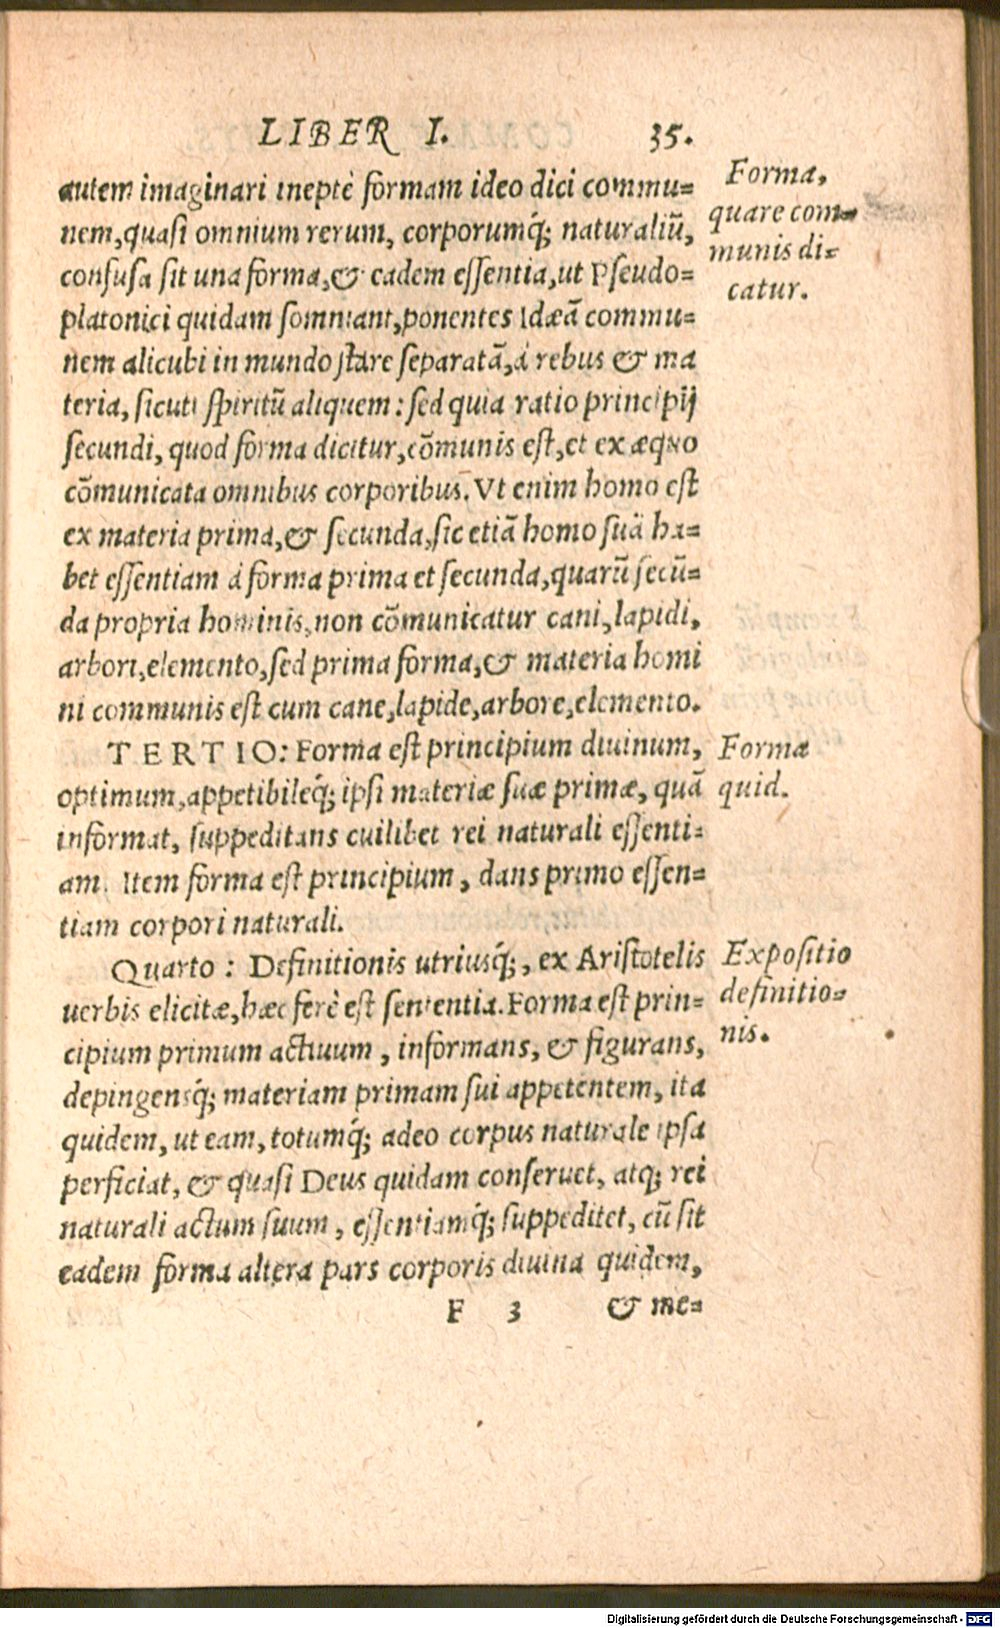 LIBER I. 35.
autem imaginari ineptè formam ideo dici commu=
nem, quasi omnium rerum, corporumq́; naturaliũ,
confusa sit una forma, & eadem essentia, ut Pseudo=
platonici quidam somniant, ponentes Idæã commu=
nem alicubi in mundo stare separatã, à rebus & ma
teria, sicuti spiritũ aliquem: sed quia ratio principij
secundi, quod forma dicitur, cõmunis est, et ex æquo
cõmunicata omnibus corporibus. Vt enim homo est
ex materia prima, & secunda, sic etiã homo suã ha=
bet essentiam à forma prima et secunda, quarũ secũ=
da propria hominis, non cõmunicatur cani, lapidi,
arbori, elemento, sed prima forma, & materia homi
ni communis est cum cane, lapide, arbore, elemento.
TERTIO: Forma est principium diuinum,
optimum, appetibileq́; ipsi materiæ suæ primæ, quã
informat, suppeditans cuilibet rei naturali essenti=
am. Item forma est principium, dans primo essen=
tiam corpori naturali.
Quarto: Definitionis utriusq́;, ex Aristotelis
uerbis elicitæ, hæc ferè est sententia. Forma est prin=
cipium primum actiuum, informans, & figurans,
depingensq́; materiam primam sui appetentem, ita
quidem, ut eam, totumq́; adeo corpus naturale ipsa
perficiat, & quasi Deus quidam conseruet, atq; rei
naturali actum suum, essentiamq́; suppeditet, cũ sit
eadem forma altera pars corporis diuina quidem,
F 3 & me=
Forma,
quare com=
munis di=
catur.
Forma
quid.
Expositio
definitio=
nis.
Digitalisierung gefördert durch die Deutsche Forschungsgemeinschaft - DFG